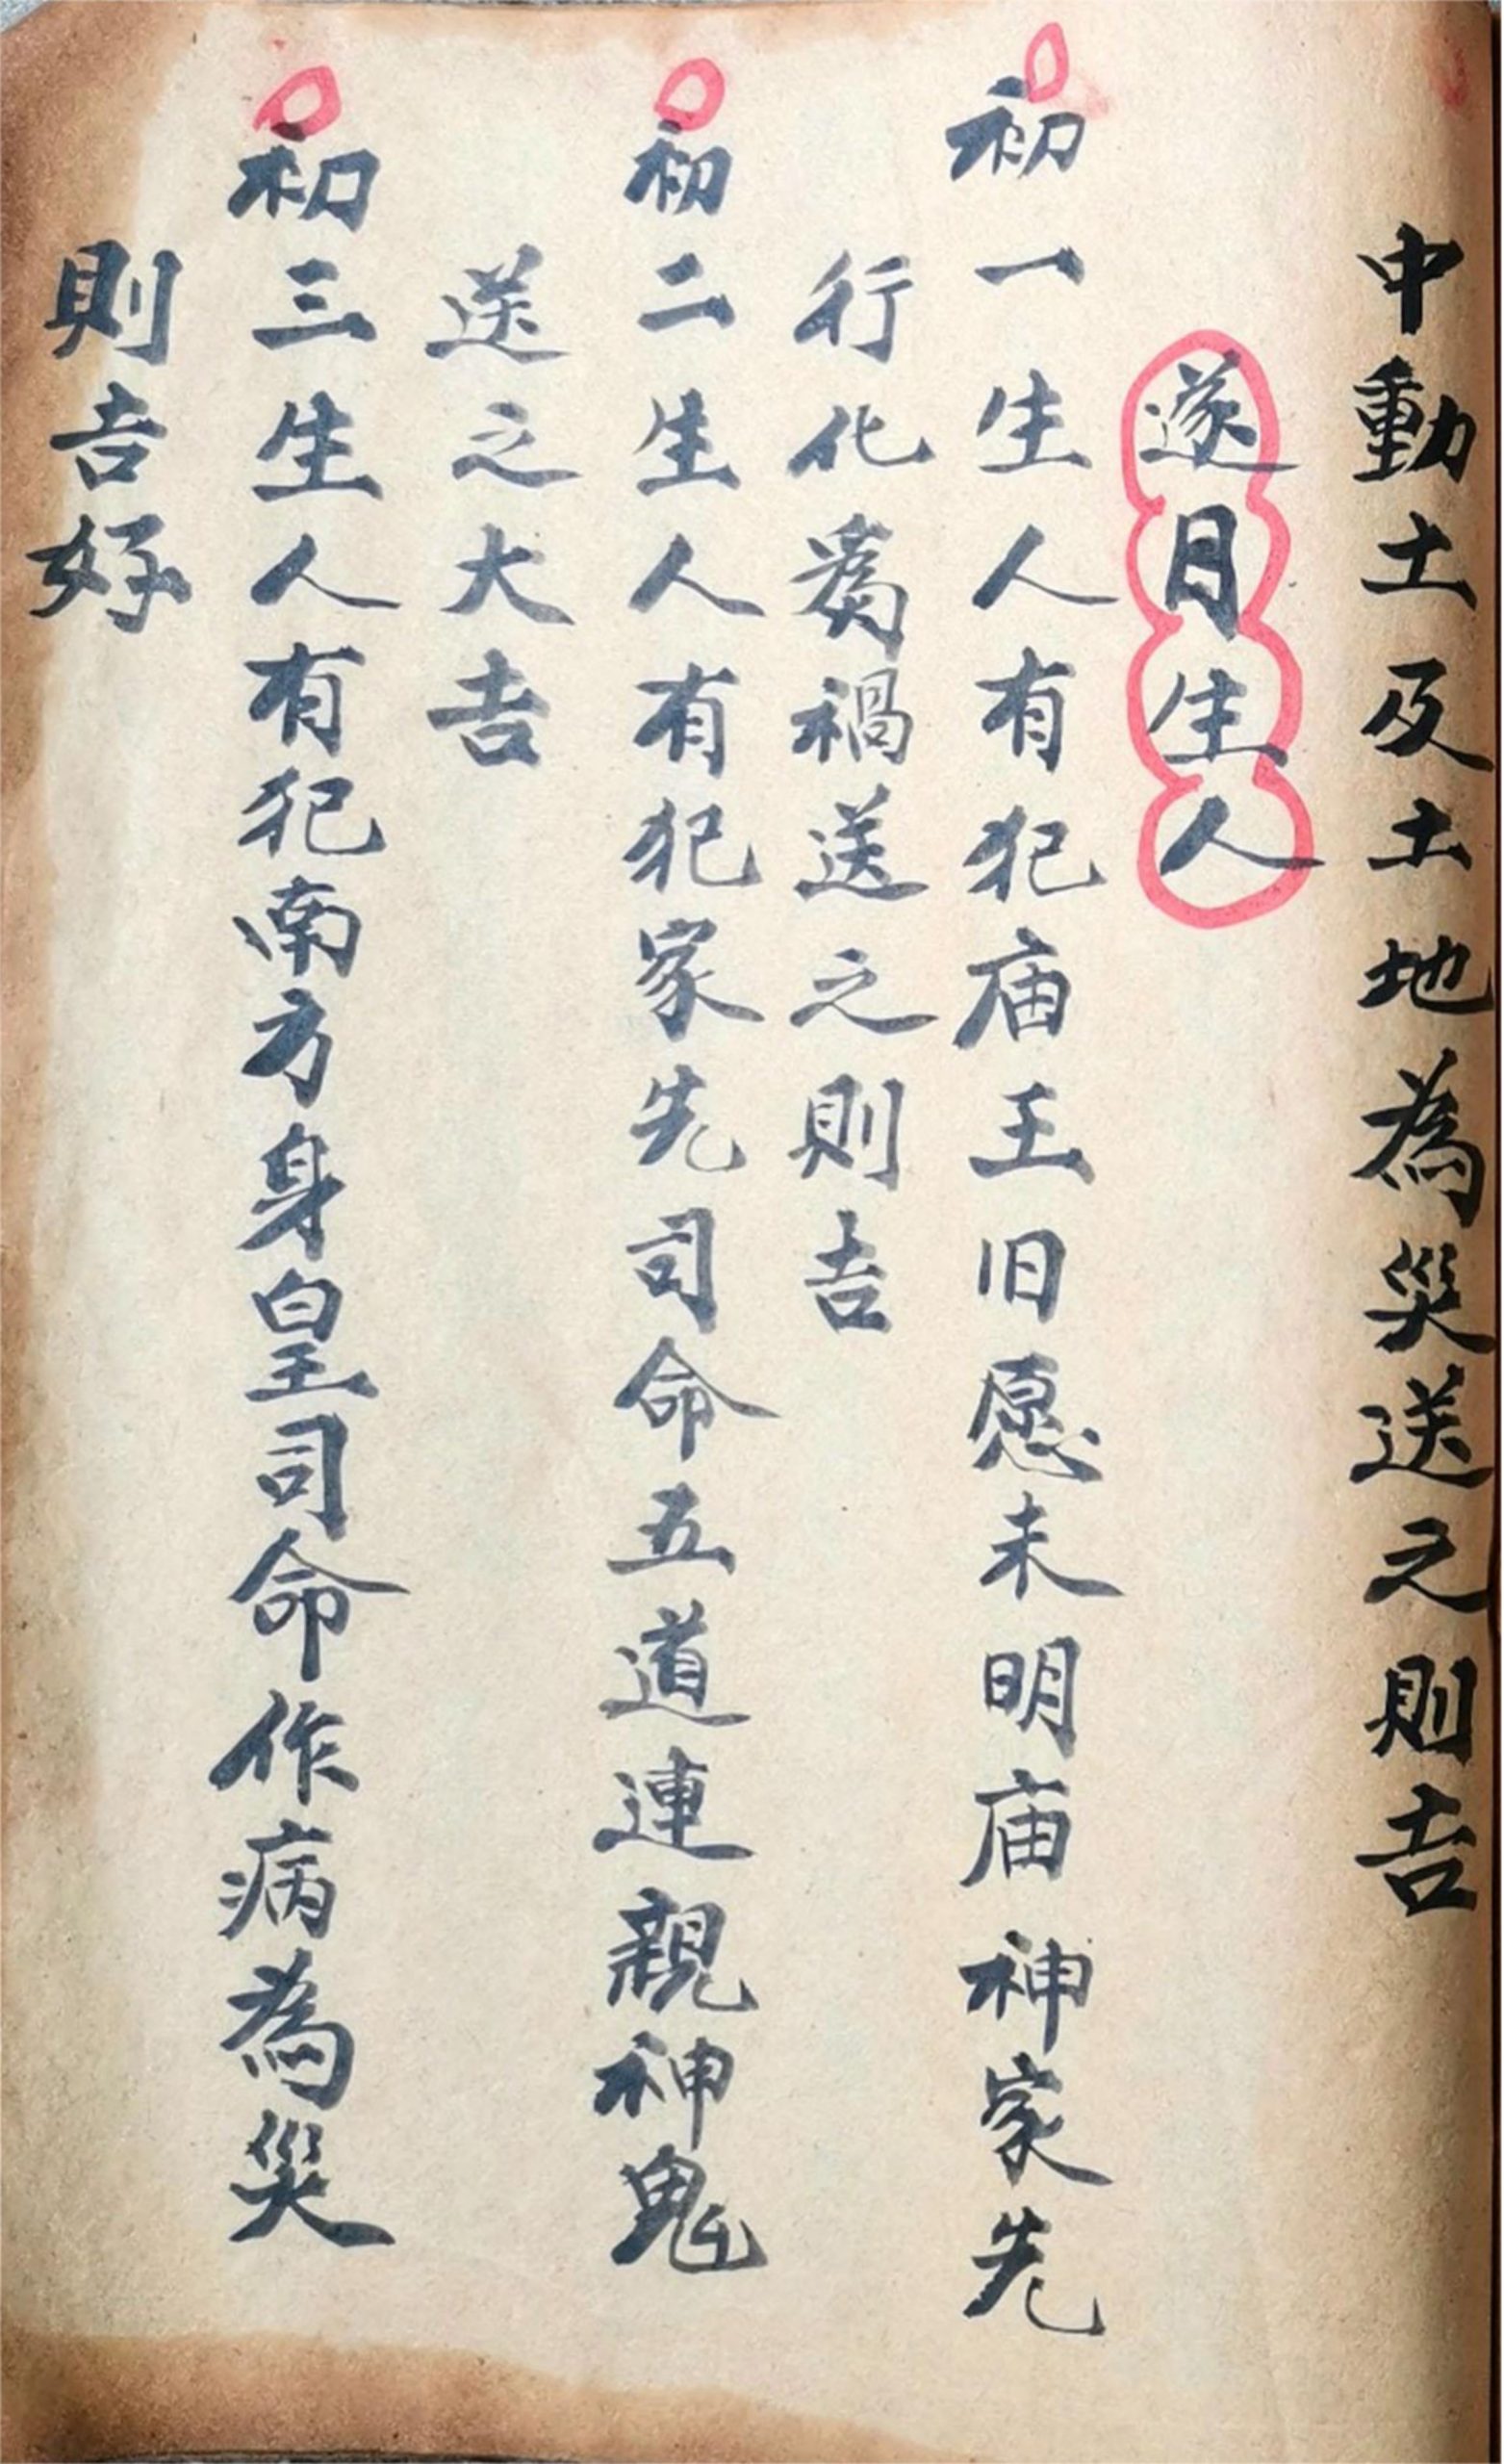 中動土及土地為災送之則吉
遂日生人
初一生人有犯庙王旧愿未明庙神家先
行化為禍送之則吉
初二生人有犯家先司命五道連親神鬼
送之大吉
初三生人有犯南方身皇司命作病為災
則吉好